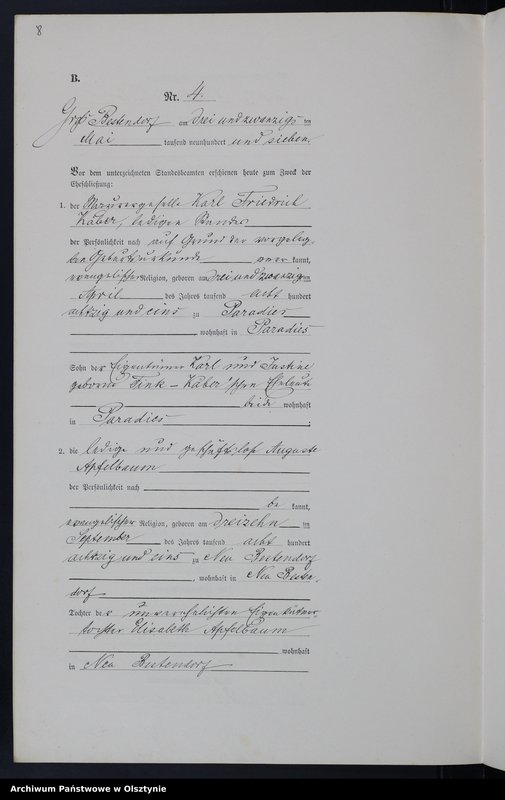 8
B.
Nr. 4.
Bestendorf am drei und zwanzigsten
Mai tausend neunhundert und sieben.
Vor dem unterzeichneten Standesbeamten erschienen heute zum Zweck der
Eheschließung:
1. der Maurergeselle Karl Friedrich
Kaber, ledigen Standes
der Persönlichkeit nach auf Grund der vorgeleg-
ten Geburtsurkunde anerkannt,
evangelischer Religion, geboren am drei und zwanzigsten
April des Jahres tausend acht hundert
achtzig und eins zu Paradies
, wohnhaft in Paradies
Sohn der Eigentümer Karl und Justine
geborene Fink - Kaber'schen Eheleute
beide wohnhaft
in Paradies
2. die ledige und geschäftslose Auguste
Apfelbaum
der Persönlichkeit nach
bekannt,
evangelischer Religion, geboren am dreizehnten
September des Jahres tausend acht hundert
achtzig und eins zu Neu Bestendorf
, wohnhaft in Neu Besten-
dorf
Tochter der unverehelichten Eigenkätner-
tochter Elisabeth Apfelbaum
wohnhaft
in Neu Bestendorf
Archiwum Państwowe w Olsztynie